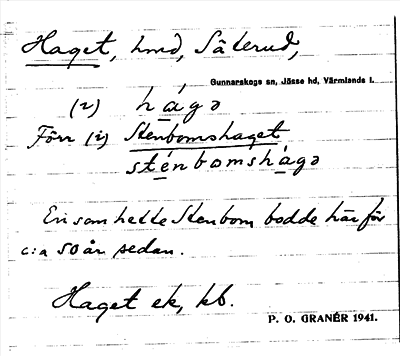 Haget, hmd, Säterud,
Gunnarskogs sn, Jösse hd, Värmlands l.
(2) hágə
Förr (i) Stenbomshaget
sténbomshágə
En som hette Stenbom bodde här för
c:a 50 år sedan.
Haget ek, kb.
P. O. GRANÉR 1941.